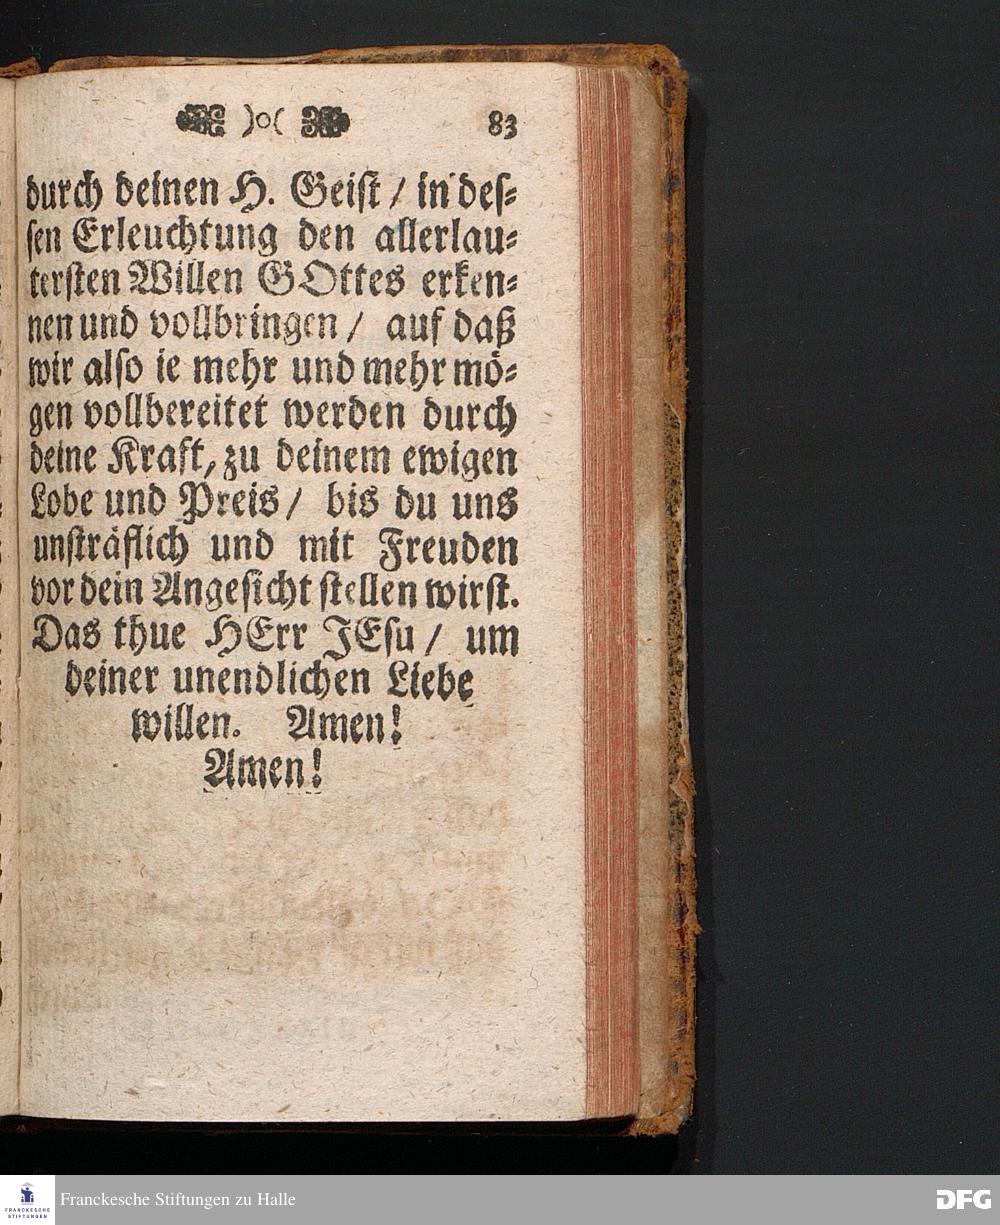 )o( 83
durch deinen H. Geist / in des=
sen Erleuchtung den allerlau=
tersten Willen GOttes erken=
nen und vollbringen / auf daß
wir also ie mehr und mehr mö=
gen vollbereitet werden durch
deine Kraft, zu deinem ewigen
Lobe und Preis / bis du uns
unsträflich und mit Freuden
vor dein Angesicht stellen wirst.
Das thue HErr JEsu / um
deiner unendlichen Liebe
willen. Amen!
Amen!
FRANCKESCHE
STIFTUNGEN
Franckesche Stiftungen zu Halle
DFG